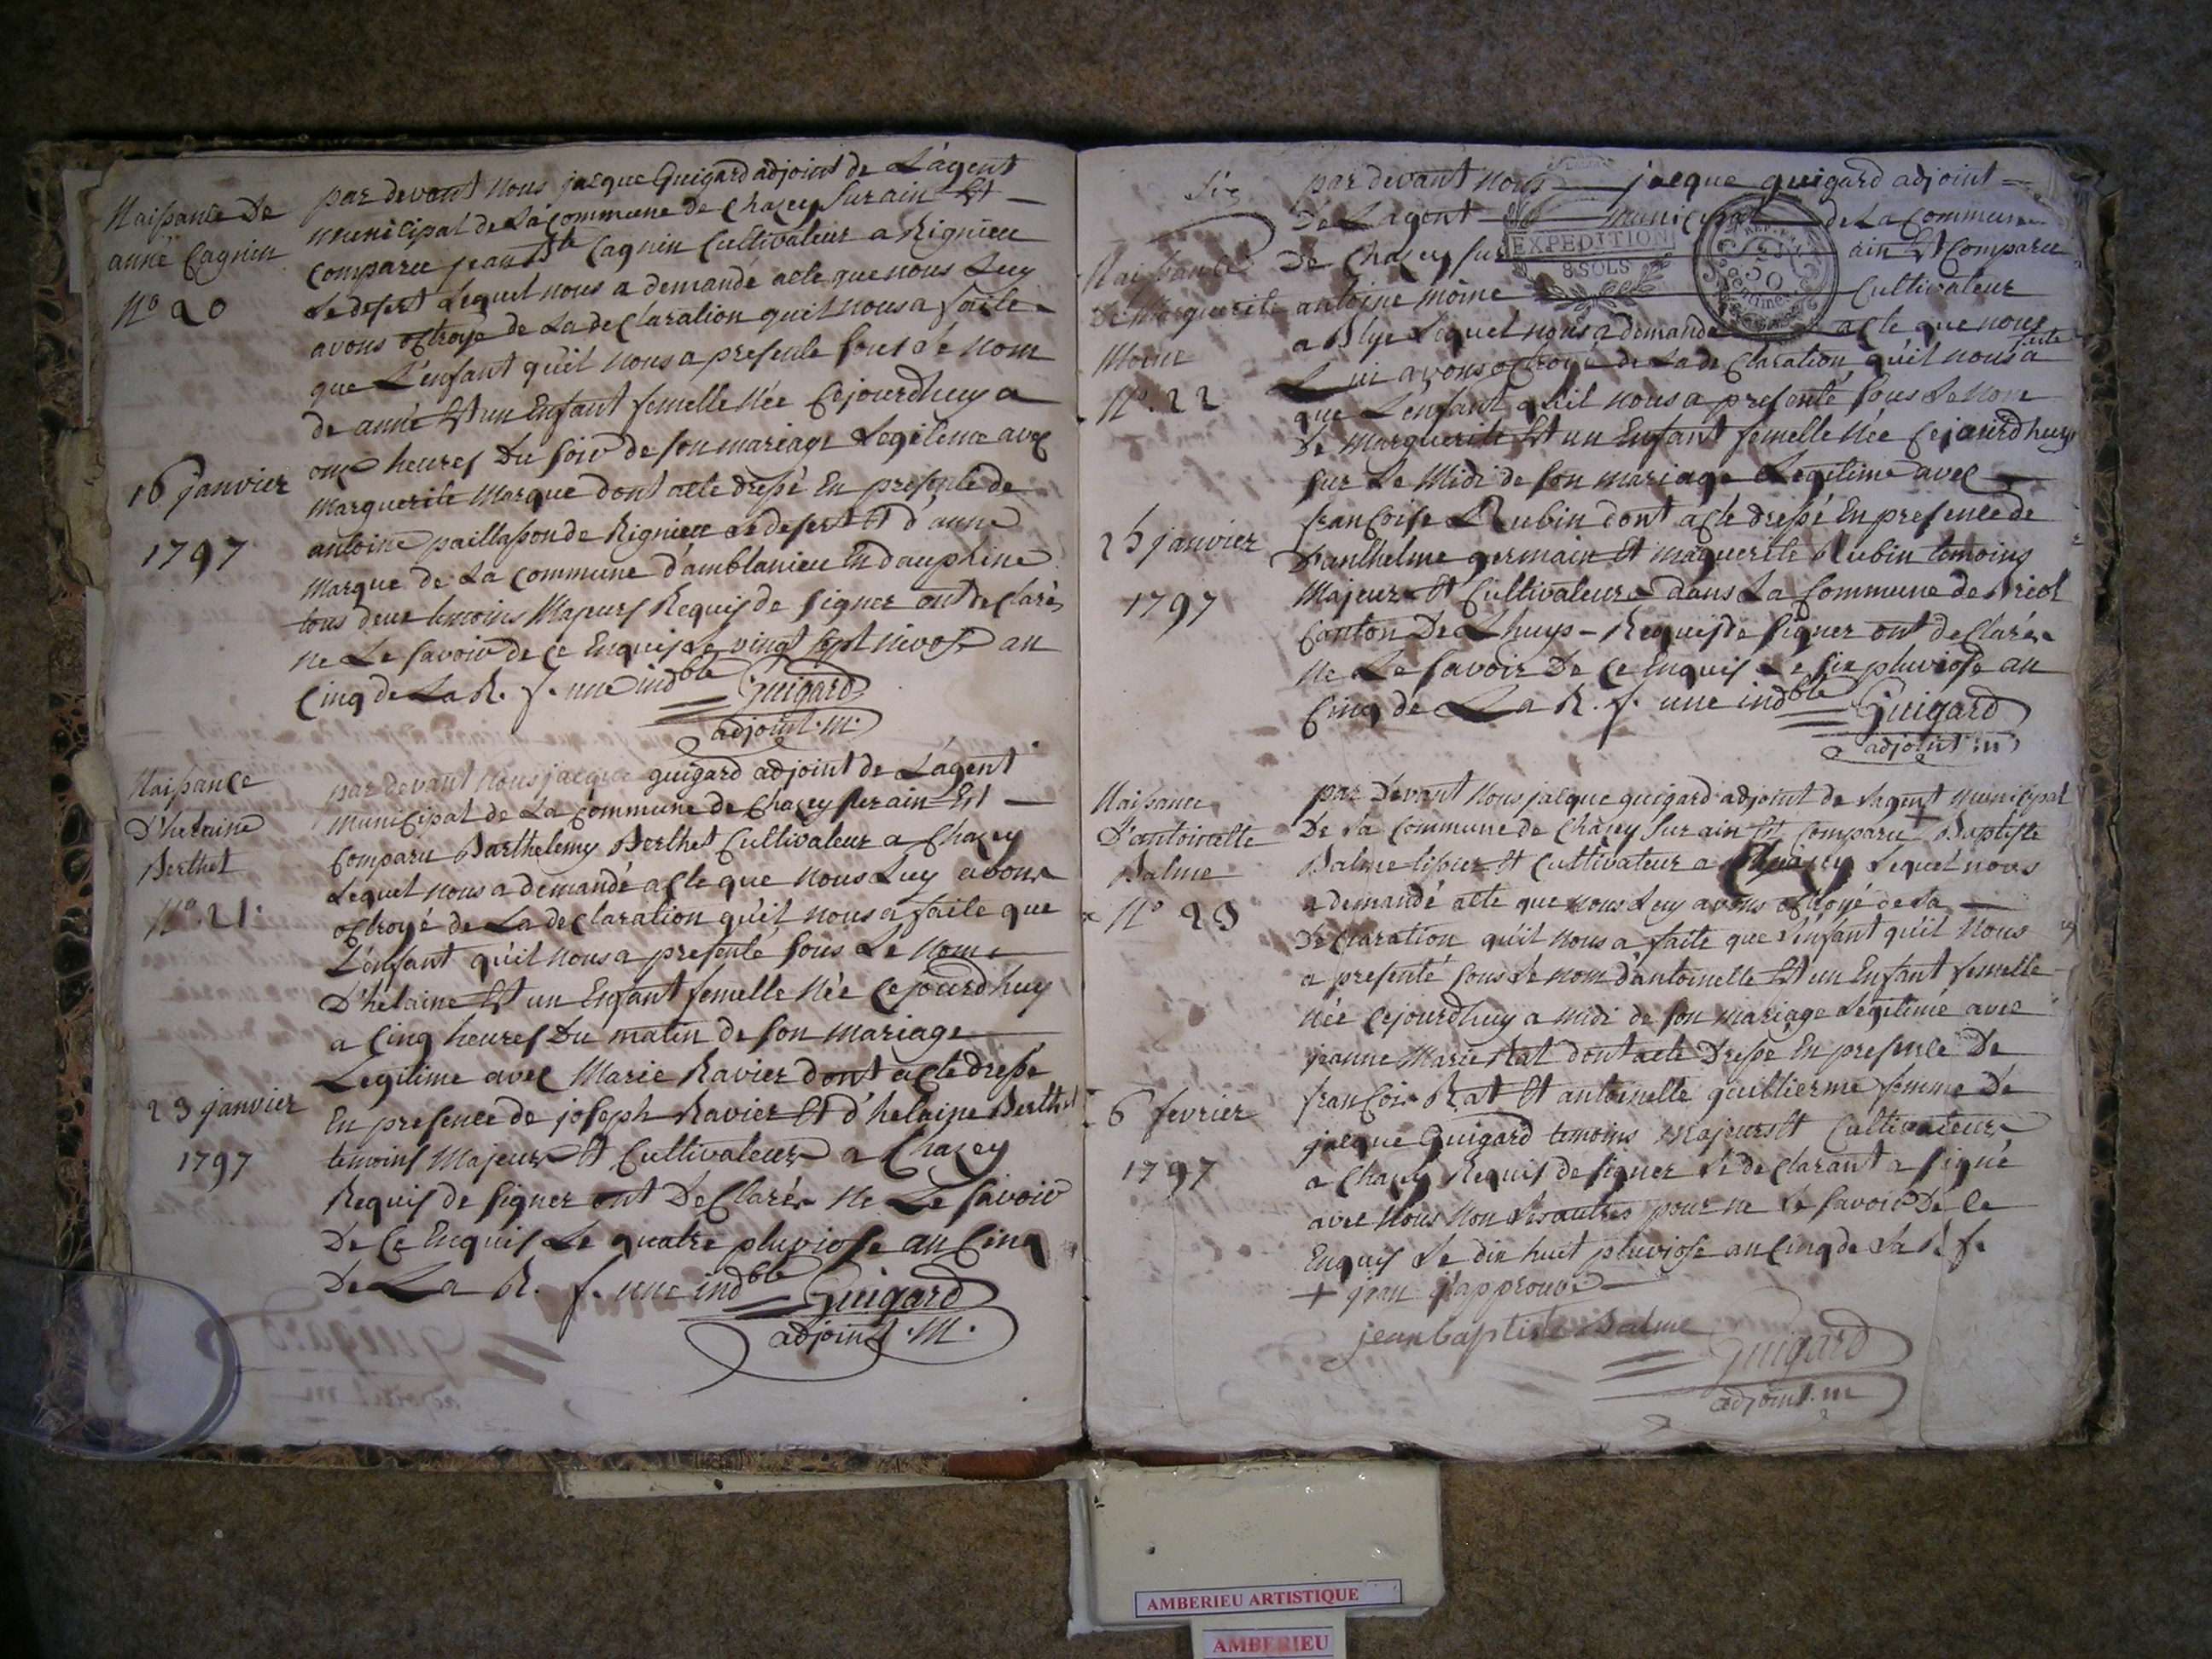 Naissance De
anne Cagnin
N° 20
16 janvier
1797
par devant nous jacque Guigard adjoint de L'agent
municipal de La commune de Chazey Sur ain Et
comparu jean Bte Cagnin Cultivateur a Rignieu
Le desert Lequel nous a demandé acte que nous Luy
avons octroyé de La declaration quil nous a faite
que L'enfant qu'il nous a presenté sous Le nom
de anne Est un Enfant femelle Née Cejourdhuy a
onze heures Du soir de son mariage Legitime avec
Marguerite Marque dont acte dressé En presence de
antoine paillasson de Rignieu Le desert Et d'anne
Marque de La commune d'amblanieu En dauphine
tous deux temoins Majeurs Requis de signer ont declarés
ne Le savoir de ce Enquis Le vingt sept nivose an
Cinq de La R. f. une indble Guigard
adjoint. M.
Naissance
D'helaine
Berthet
N°. 21.
23 janvier
1797
par devant nous jacque guigard adjoint de L'agent
municipal de La commune de Chazey sur ain Est
comparu Barthelemy Berthet Cultivateur a Chazey
Lequel nous a demandé acte que nous Luy avons
octroyé de La declaration qu'il nous a faite que
L'enfant qu'il nous a presenté sous Le nom
D'helaine Est un Enfant femelle Née Cejourdhuy
a Cinq heures Du matin de son mariage
Legitime avec Marie Ravier dont acte dressé
En presence de joseph Ravier Et d'helaine Berthet
temoins Majeurs Et Cultivateurs a Chazey
Requis de signer ont Declarés Ne Le savoir
De Ce Enquis Le quatre pluviose an Cinq
De La R. f. une indble Guigard
adjoint. M.
Six
Naissance
De Marguerite
Moine
N°. 22
25 janvier
1797
EXPEDITION
8 SOLS
par devant Nous jacque guigard adjoint
De Lagent municipal de La Commune
De Chazey sur ain Est Comparu
antoine moine Cultivateur
a Blye Lequel nous a demandé acte que nous
Lui avons octroyé de La declaration qu'il nous a faite
que L'enfant qu'il nous a presenté sous Le Nom
De Marguerite Est un Enfant femelle Née Cejourdhuy
sur Le Midi de son mariage Legitime avec
françoise Rubin dont acte dressé En presence de
D'anthelme germain Et maguerite Rubin temoins
Majeurs Et Cultivateurs dans La Commune de Briol
Canton De Lhuys - Requis de signer ont declarés
ne Le savoir De ce Enquis Le six pluviose an
Cinq de La R. f. une indble Guigard
adjoint. m
Naissance
D'antoinette
Balme
N° 23
6 fevrier
1797
par Devant Nous jacque guigard adjoint de Lagent municipal
De La Commune de Chazey Sur ain Est Comparu + Baptiste
Balme tissier Et Cultivateur a Chazey Lequel nous
a demandé acte que nous Luy avons octroyé de La
Declaration qu'il nous a faite que L'enfant qu'il nous
a presenté sous Le nom d'antoinette Est un Enfant femelle
Née Cejourdhuy a midi de son mariage Legitime avec
jeanne Marie Rat dont acte Dressé En presence De
françois Rat Et antoinette guillierme femme De
jacque Guigard temoins Majeurs Et Cultivateurs
a Chazey Requis de signer Le declarant a signé
avec Nous Non Les autres pour ne Le savoir De Ce
Enquis Le dix huit pluviose an Cinq de La R. f.
+ jean j'approuve
jean baptiste Balme
Guigard
adjoint. m
AMBERIEU ARTISTIQUE
AMBERIEU